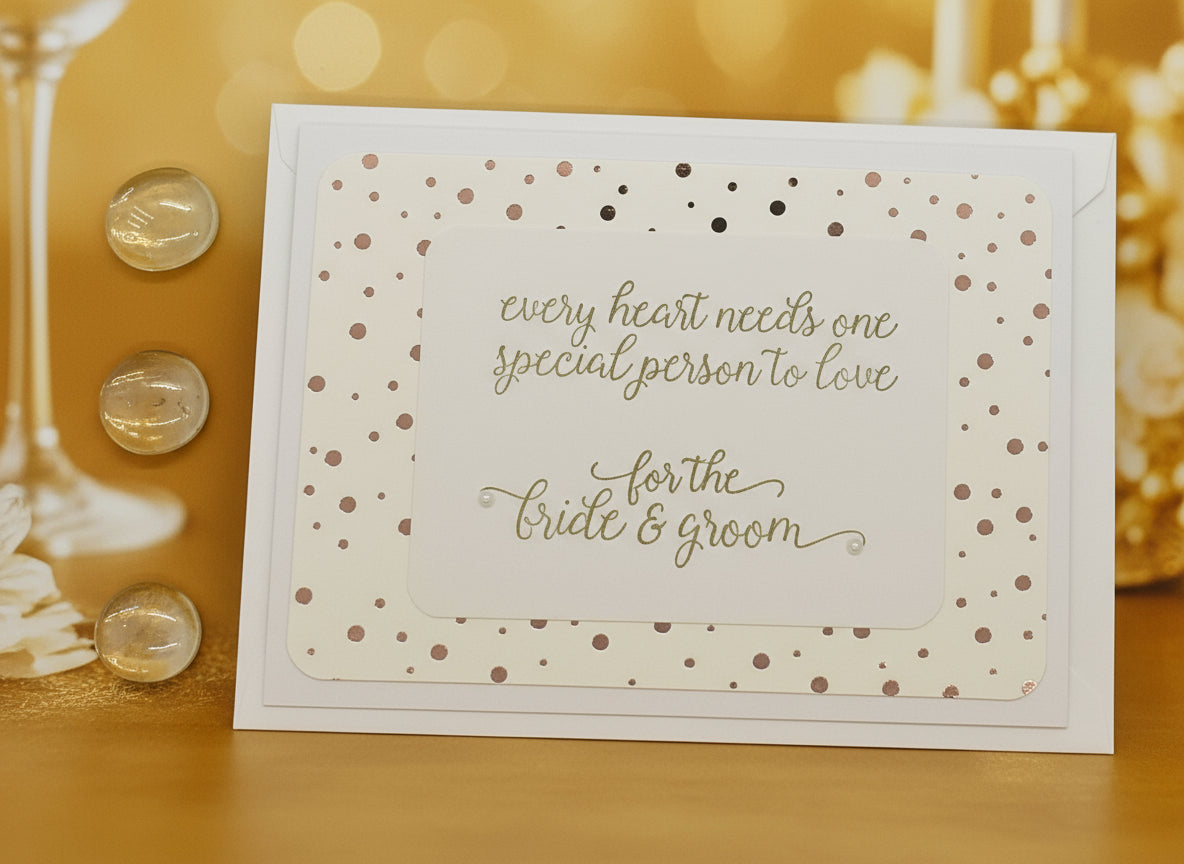 every heart needs one
special person to love
for the
bride & groom